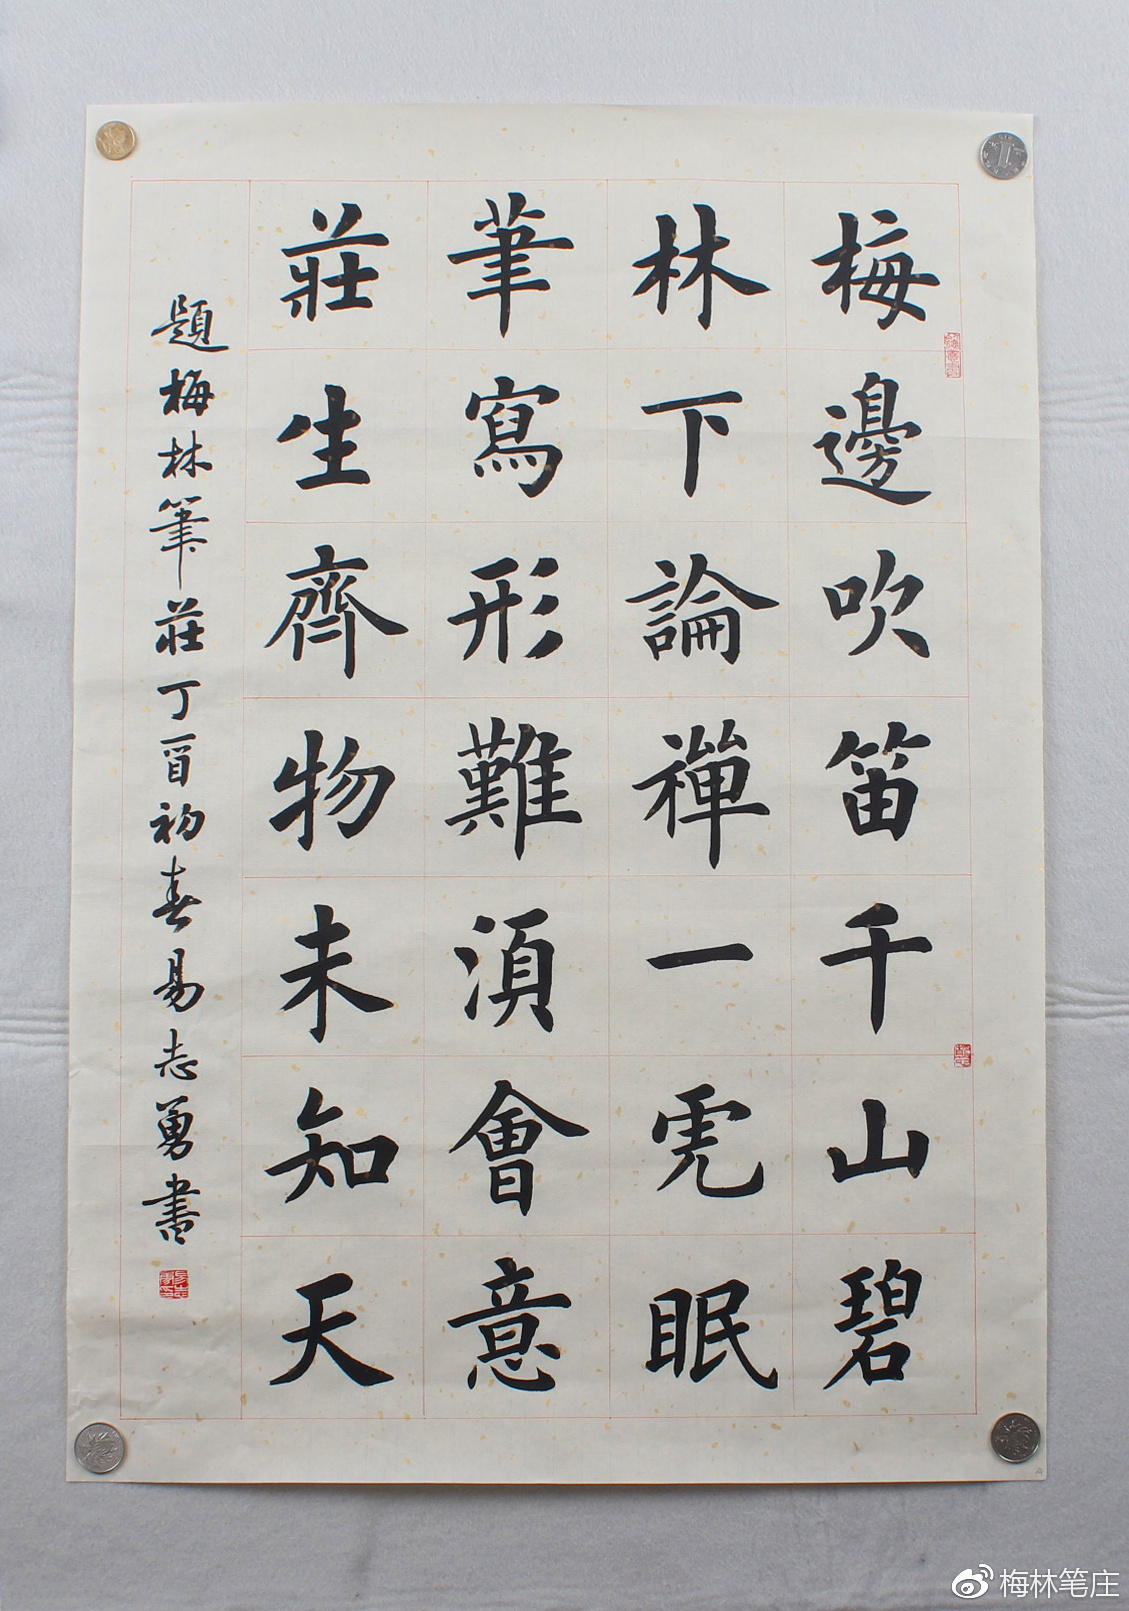 梅邊吹笛千山碧
林下論禪一虎眠
筆寫形難湏會意
莊生齊物未知天
題梅林筆莊丁酉初春易志勇書
梅林笔庄